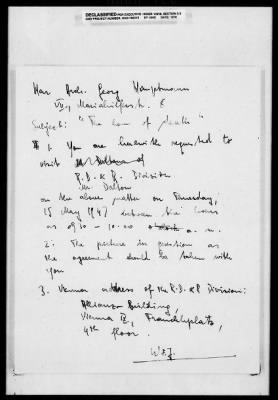 DECLASSIFIED
Herr Arch. Georg Hauptmann
VII., Mariahilferstr. 6
Subject: "The hour of death"
1. You are herewith requested to
visit
R.D. & R. Division
Mr. Dalton
on the above matter on Thursday,
15 May 1947 between the hours
as 0930 - 10.00 a.m.
2. The picture in question as
the agreement should be taken with
you
3. Vienna address of the R.D. & R Division:
Allianz Building,
Vienna
4th floor.